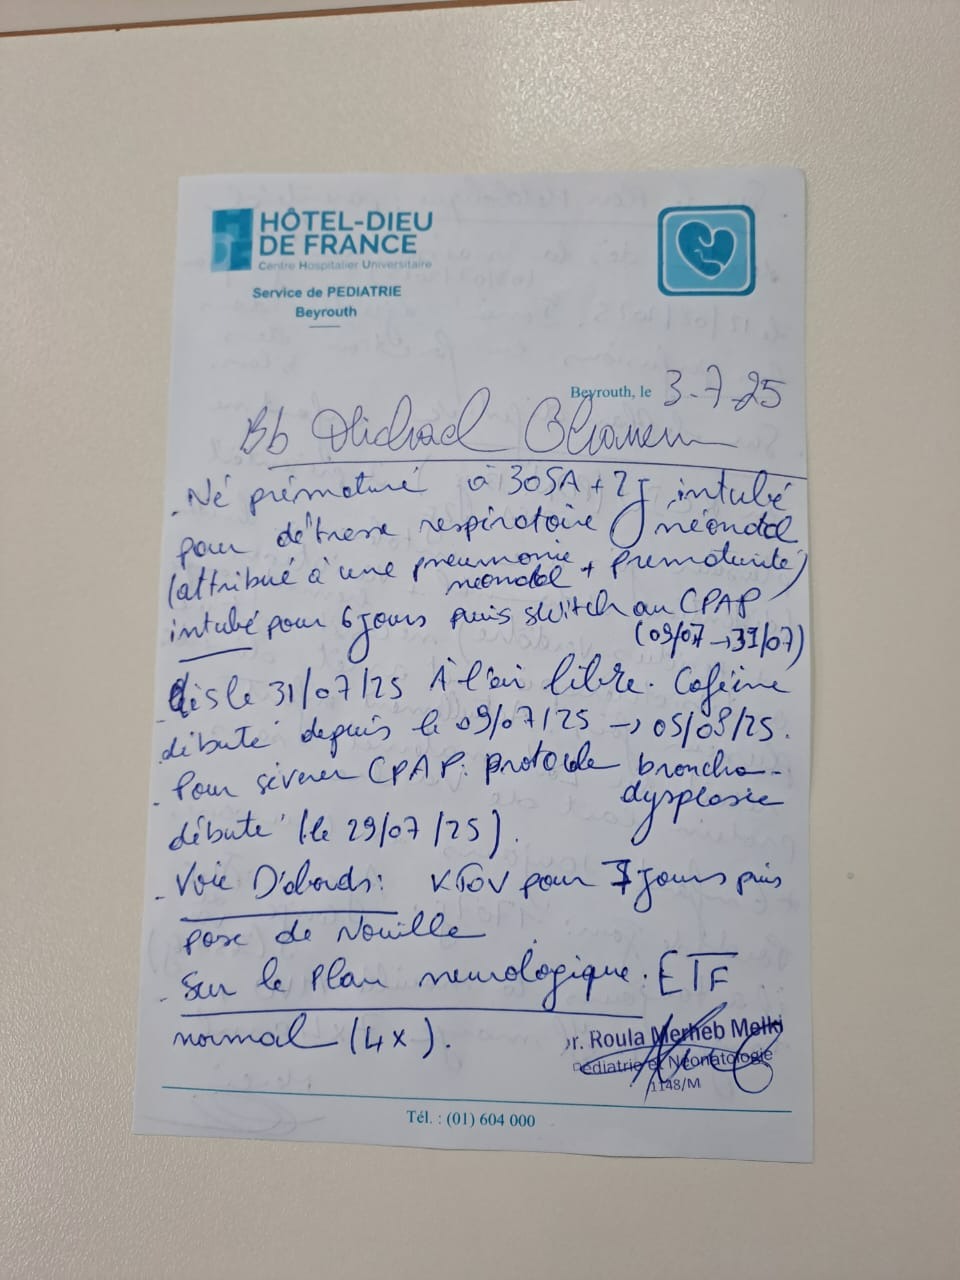 HÔTEL-DIEU
DE FRANCE
Centre Hospitalier Universitaire
Service de PEDIATRIE
Beyrouth
Beyrouth, le 3.7.25
Bb Michael
- Né prématuré à 30SA + 2J intubé
pour détresse respiratoire néonatal
(attribué à une pneumonie néonatal + prematurité)
intubé pour 6 jours puis switch au CPAP
(09/07 → 31/07)
- dès le 31/07/25 À l'air libre. Caféine
débuté depuis le 09/07/25 → 05/08/25.
- Pour sevrer CPAP: protocole broncho-
dysplasie
débuté (le 29/07/25).
- Voie D'abords: KTOV pour 7 jours puis
pose de Nouille
- Sur le Plan neurologique. ETF
normal (4x).
Dr. Roula Merheb Melki
Pédiatrie et Néonatologie
1148/M
Tél. : (01) 604 000